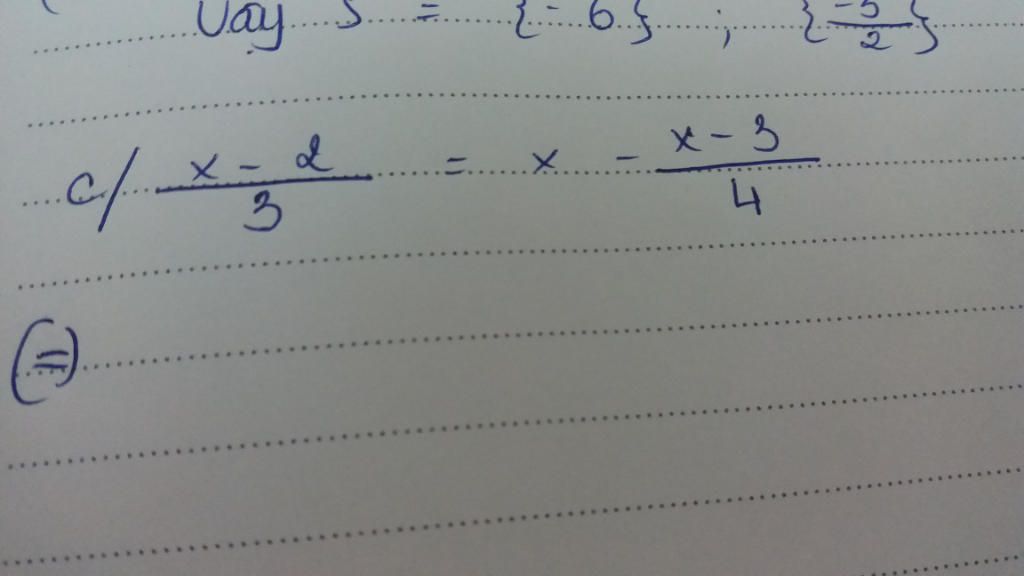 Vậy S = {-6} ; {-5/2}
c/ x - 2 / 3 = x - x - 3 / 4
(=)